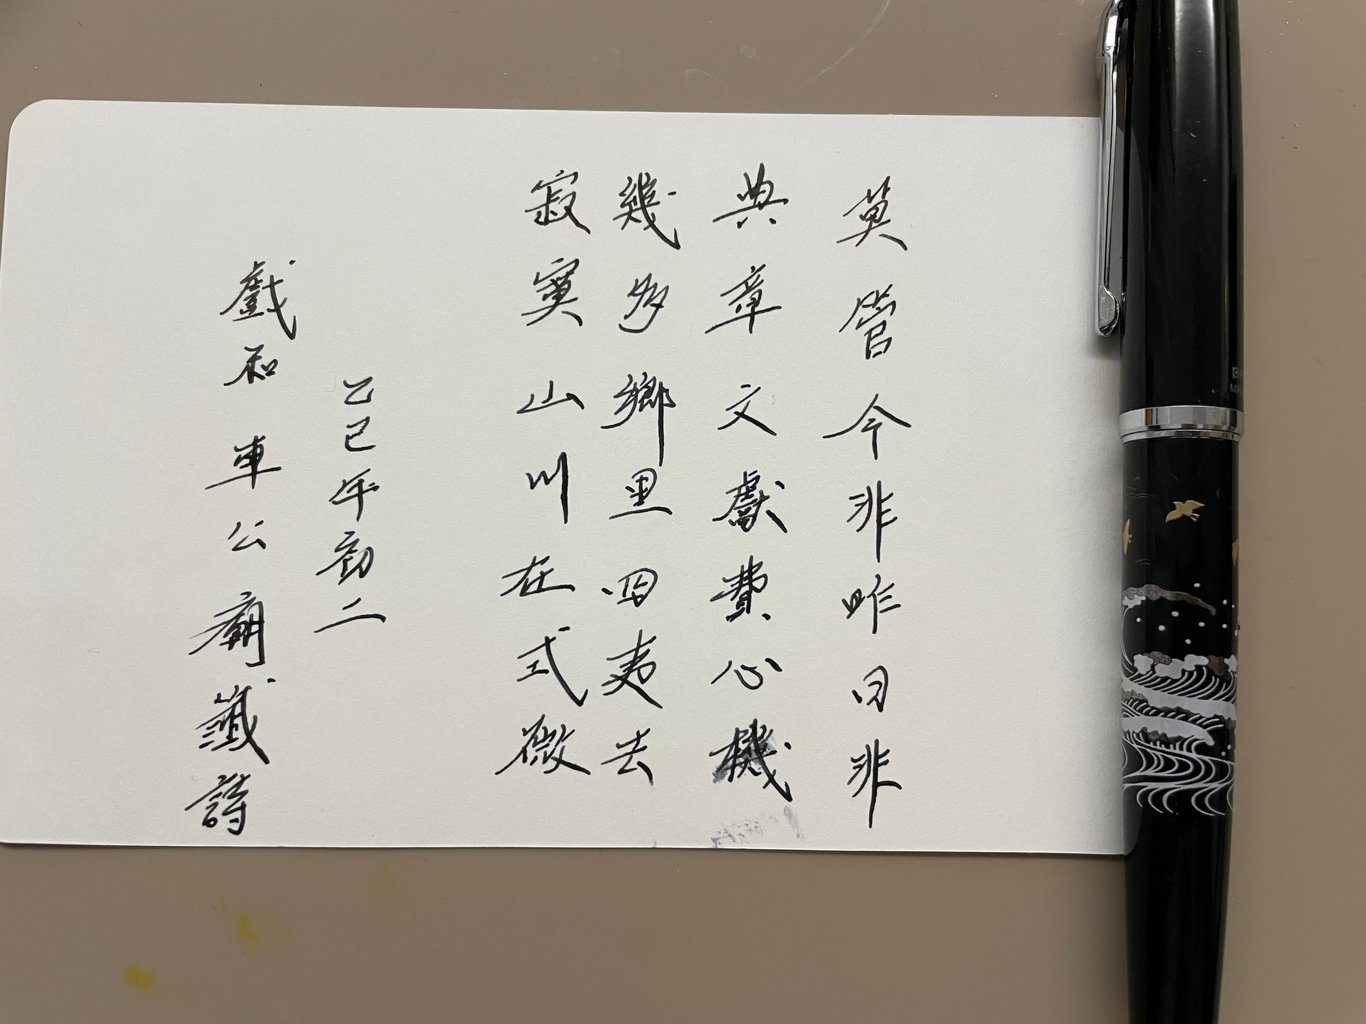 莫管今非昨日非
典章文獻費心機
幾多鄉里四夷去
寂寞山川在式微
乙巳年初二
戲和車公廟籤詩